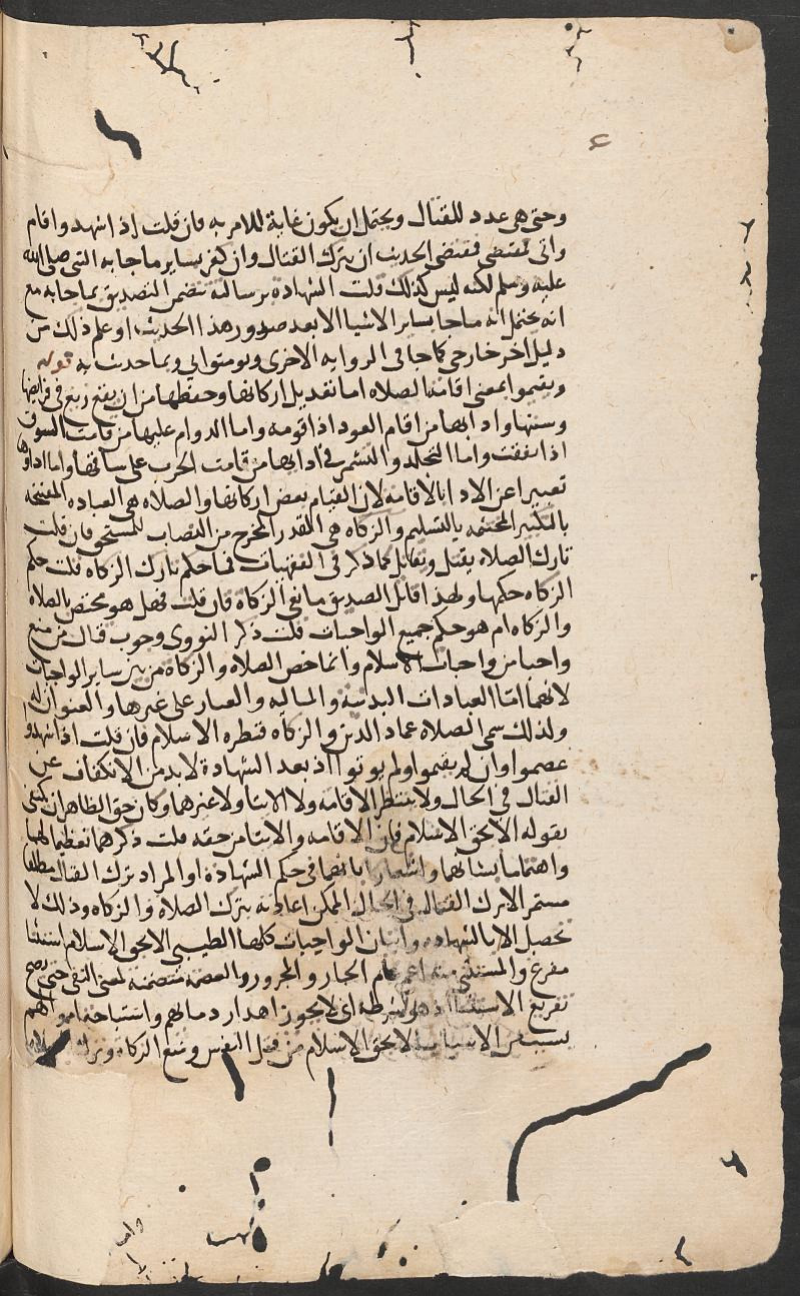 ع
وحتى هى عدد للقتال ويحتمل ان يكون غاية للامر به فان قلت اذ اشهد واقام
واتى تقتضى فمقتضى الحديث ان يترك القتال وان كفر بساير ما جا به النبى صلى الله
عليه وسلم لكنه ليس كذلك قلت الشهادة برسالته تتضمن التصديق بما جا به مع
انه يحتمل انه ما جا بساير الاشيا الا بعد صدور هذا الحديث او علم ذلك من
دليل اخر خارجى كما جا فى الروايه الاخرى ويومنوا بى وبما جئت به قوله
ويقيموا بمعنى اقامة الصلاه اما تعديل اركانها وحفظها من ان يقع زيغ فى فرايضها
وسننها وادابها من اقام العود اذا قومه واما الدوام عليها من قامت السوق
اذا نفقت واما التجلد والتشمر فى ادايها من قامت الحرب على ساقها واما اداوها
تعبيرا عن الادا بالاقامه لان القيام بعض اركانها والصلاه هى العباده المفتتحه
بالتكبير المختتمه بالتسليم والزكاه هى القدر المخرج من النصاب للمستحق فان قلت
تارك الصلاه يقتل ويقاتل كما ذكر فى الفقهيات فما حكم تارك الزكاه قلت حكم
الزكاه حكمها ولهذا قاتل الصديق مانعى الزكاة فان قلت فهل هو مختص بالصلاه
والزكاه ام هو حكم جميع الواجبات قلت ذكر النووى وجوب قتال من منع
واجبا من واجبات الاسلام وانما خص الصلاه والزكاة من بين ساير الواجبات
لانهما امّا العبادات البدنيه والماليه والعيار على غيرها والعنوان له
ولذلك سمى الصلاه عماد الدين والزكاه قنطرة الاسلام فان قلت اذا شهدوا
عصموا وان لم يقيموا ولم يوتوا اذ بعد الشهادة لابد من الانكفاف عن
القتال فى الحال ولا ينتظر الاقامه ولا الايتا ولا غيرهما وكان حق الظاهر ان يكتفى
بقوله الا بحق الاسلام فان الاقامه والايتا من حقه قلت ذكرهما تعظيما لهما
واهتماما بشانهما واشعارا بانهما فى حكم الشهادة او المراد ترك القتال مطلقا
مستمرا لا ترك القتال فى الحال الممكن اعادته بترك الصلاة والزكاه وذلك لا
تحصل الا بالشهاده واتيان الواجبات كلها الطيبى الا بحق الاسلام استثنا
مفرغ والمستثنى منه اعم عام الجار والمجرور والعصمه متضمنه لمعنى النفى حتى يصح
تفريع الاستثنا اذ هو شرطه اى لا يجوز اهدار دمايهم واستباحه اموالهم
بسبب من الاسباب الا بحق الاسلام من قتل النفس ومنع الزكاه وترك الصلاه